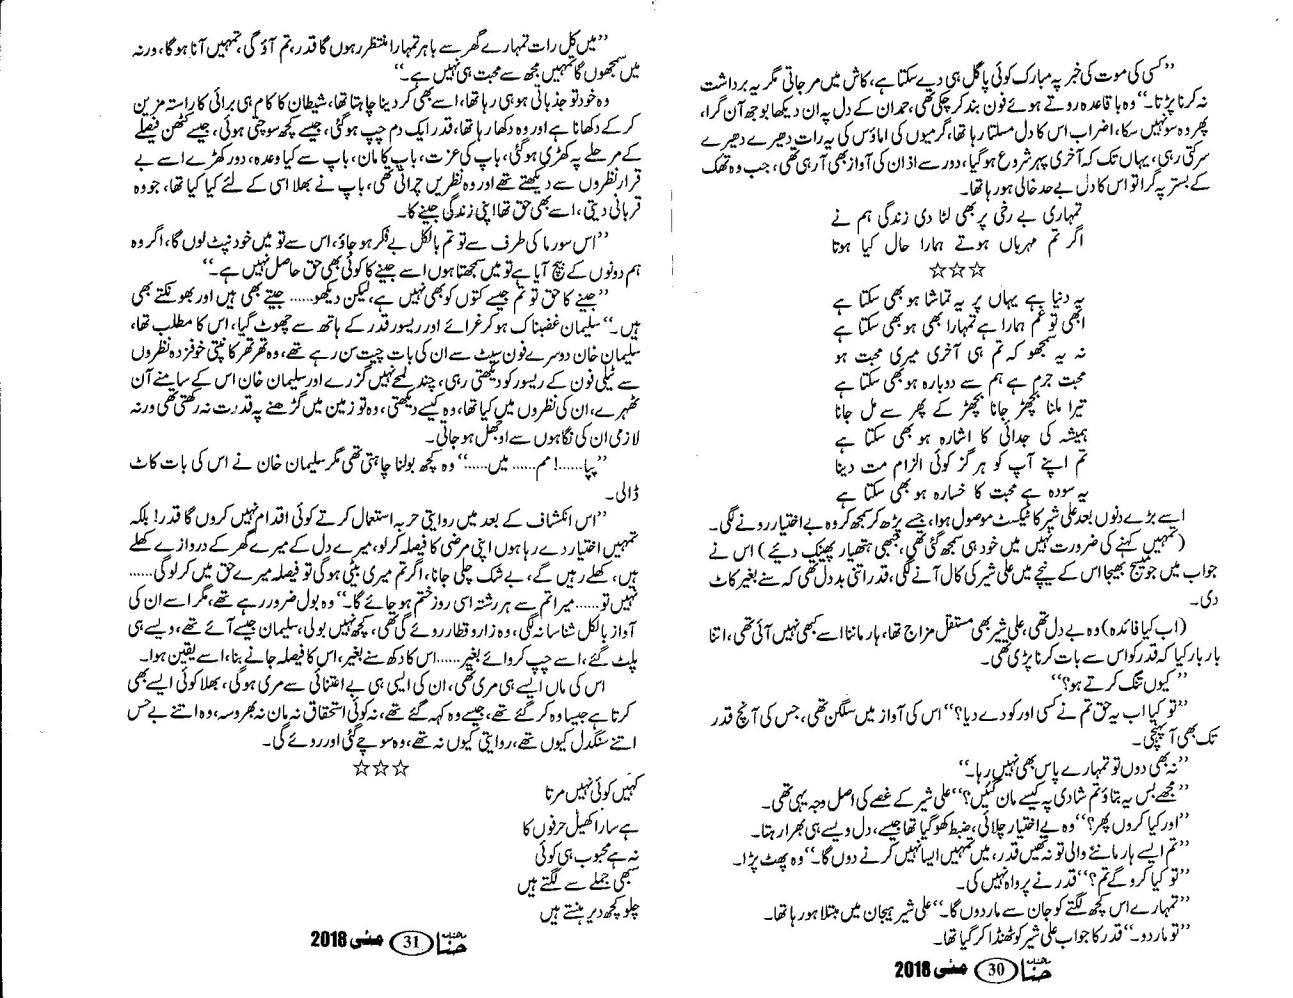 ’’کسی کی موت کی خبر پہ مبارک کوئی پاگل ہی دے سکتا ہے، کاش میں مر جاتی مگر یہ برداشت
نہ کرنا پڑتا۔‘‘ وہ باقاعدہ روتے ہوئے فون بند کر چکی تھی، حمدان کے دل پہ ان دیکھا بوجھ آن گرا،
پھر وہ سو نہیں سکا، اضراب اس کا دل مسلتا رہا تھا، گرمیوں کی اماؤس کی یہ رات دھیرے دھیرے
سرکتی رہی، یہاں تک کہ آخری پہر شروع ہو گیا، دور سے اذان کی آواز بھی آ رہی تھی، جب وہ تھک
کے بستر پہ گرا تو اس کا دل بے حد خالی ہو رہا تھا۔
تمہاری بے رخی پر بھی لٹا دی زندگی ہم نے
اگر تم مہرباں ہوتے ہمارا حال کیا ہوتا
☆☆☆
یہ دنیا ہے یہاں پر یہ تماشا ہو بھی سکتا ہے
ابھی تو غم ہمارا ہے تمہارا بھی ہو بھی سکتا ہے
نہ یہ سمجھو کہ تم ہی آخری میری محبت ہو
محبت جرم ہے ہم سے دوبارہ ہو بھی سکتا ہے
تیرا ملنا بچھڑ جانا بچھڑ کے پھر سے مل جانا
ہمیشہ کی جدائی کا اشارہ ہو بھی سکتا ہے
تم اپنے آپ کو ہرگز کوئی الزام مت دینا
یہ سودہ ہے محبت کا خسارہ ہو بھی سکتا ہے
اسے بڑے دنوں بعد علی شیر کا ٹیکسٹ موصول ہوا، جسے پڑھ کر سمجھ کر وہ بے اختیار رونے لگی۔
(تمہیں کہنے کی ضرورت نہیں میں خود ہی سمجھ گئی تھی، جبھی ہتھیار پھینک دیئے) اس نے
جواب میں جو میسج بھیجا اس کے نیچے میں علی شیر کی کال آنے لگی، قدر اتنی بد دل تھی کہ سنے بغیر کاٹ
دی۔
(اب کیا فائدہ) وہ بے دل تھی، علی شیر بھی مستقل مزاج تھا، ہار ماننا اسے کبھی نہیں آئی تھی، اتنا
بار بار کیا کہ قدر کو اس سے بات کرنا پڑی تھی۔
’’کیوں تنگ کرتے ہو؟‘‘
’’تو کیا اب یہ حق تم نے کسی اور کو دے دیا؟‘‘ اس کی آواز میں سلگن تھی، جس کی آنچ قدر
تک بھی آ پہنچی۔
’’نہ بھی دوں تو تمہارے پاس بھی نہیں رہا۔‘‘
’’مجھے بس یہ بتاؤ تم شادی پہ کیسے مان گئیں؟‘‘ علی شیر کے غصے کی اصل وجہ یہی تھی۔
’’اور کیا کروں پھر؟‘‘ وہ بے اختیار چلائی، ضبط کھو گیا تھا جیسے، دل ویسے ہی بھرا رہتا۔
’’تم ایسے ہار ماننے والی تو نہ تھیں قدر، میں تمہیں ایسا نہیں کرنے دوں گا۔‘‘ وہ پھٹ پڑا۔
’’تو کیا کرو گے تم؟‘‘ قدر نے پرواہ نہیں کی۔
’’تمہارے اس کچھ لگتے کو جان سے مار دوں گا۔‘‘ علی شیر ہیجان میں مبتلا ہو رہا تھا۔
’’تو مار دو۔‘‘ قدر کا جواب علی شیر کو ٹھنڈا کر گیا تھا۔
ماہنامہ حنا 30 مئی 2018
’’میں کل رات تمہارے گھر سے باہر تمہارا منتظر رہوں گا قدر، تم آؤ گی، تمہیں آنا ہو گا، ورنہ
میں سمجھوں گا تمہیں مجھ سے محبت ہی نہیں ہے۔‘‘
وہ خود تو جذباتی ہو ہی رہا تھا، اسے بھی کر دینا چاہتا تھا، شیطان کا کام ہی برائی کا راستہ مزین
کر کے دکھانا ہے اور وہ دکھا رہا تھا، قدر ایک دم چپ ہو گئی، جیسے کچھ سوچتی ہوئی، جیسے کٹھن فیصلے
کے مرحلے پہ کھڑی ہو گئی، باپ کی عزت، باپ کا مان، باپ سے کیا وعدہ، دور کھڑے اسے بے
قرار نظروں سے دیکھتے تھے اور وہ نظریں چراتی تھی، باپ نے بھلا اسی کے لئے کیا کیا تھا، جو وہ
قربانی دیتی، اسے بھی حق تھا اپنی زندگی جینے کا۔
’’اس سورما کی طرف سے تو تم بالکل بے فکر ہو جاؤ، اس سے تو میں خود نپٹ لوں گا، اگر وہ
ہم دونوں کے بیچ آیا ہے تو میں سمجھتا ہوں اسے جینے کا کوئی بھی حق حاصل نہیں ہے۔‘‘
’’جینے کا حق تو تم جیسے کتوں کو بھی نہیں ہے، لیکن دیکھو...... جیتے بھی ہیں اور بھونکتے بھی
ہیں۔‘‘ سلیمان غضبناک ہو کر غرائے اور ریسور قدر کے ہاتھ سے چھوٹ گیا، اس کا مطلب تھا،
سلیمان خان دوسرے فون سیٹ سے ان کی بات چیت سن رہے تھے، وہ تھر تھر کانپتی خوفزدہ نظروں
سے ٹیلی فون کے ریسور کو دیکھتی رہی، چند لمحے نہیں گزرے اور سلیمان خان اس کے سامنے آن
ٹھہرے، ان کی نظروں میں کیا تھا، وہ کیسے دیکھتی، وہ تو زمین میں گڑھنے پہ قدرت نہ رکھتی تھی ورنہ
لازمی ان کی نگاہوں سے اوجھل ہو جاتی۔
’’پپا......! مم...... میں......‘‘ وہ کچھ بولنا چاہتی تھی مگر سلیمان خان نے اس کی بات کاٹ
ڈالی۔
’’اس انکشاف کے بعد میں روایتی حربہ استعمال کرتے کوئی اقدام نہیں کروں گا قدر! بلکہ
تمہیں اختیار دے رہا ہوں اپنی مرضی کا فیصلہ کر لو، میرے دل کے میرے گھر کے دروازے کھلے
ہیں، کھلے رہیں گے، بے شک چلی جانا، اگر تم میری بیٹی ہو گی تو فیصلہ میرے حق میں کر لو گی......
نہیں تو...... میرا تم سے ہر رشتہ اسی روز ختم ہو جائے گا۔‘‘ وہ بول ضرور رہے تھے، مگر اسے ان کی
آواز بالکل شناسا نہ لگی، وہ زار و قطار روئے گی تھی، کچھ نہیں بولی، سلیمان جیسے آئے تھے، ویسے ہی
پلٹ گئے، اسے چپ کروائے بغیر...... اس کا دکھ سنے بغیر، اس کا فیصلہ جانے بنا، اسے یقین ہوا۔
اس کی ماں ایسے ہی مری تھی، ان کی ایسی ہی بے اعتنائی سے مری ہو گی، بھلا کوئی ایسے بھی
کرتا ہے جیسا وہ کر گئے تھے، جیسے وہ کہہ گئے تھے، نہ کوئی استحقاق نہ مان نہ بھروسہ، وہ اتنے بے حس
اتنے سنگدل کیوں تھے، روایتی کیوں نہ تھے، وہ سوچے گئی اور روئے گی۔
☆☆☆
کہیں کوئی نہیں مرتا
ہے سارا کھیل حرفوں کا
نہ ہے محبوب ہی کوئی
سبھی جملے سے لگتے ہیں
چلو کچھ دیر ہنستے ہیں
ماہنامہ حنا 31 مئی 2018